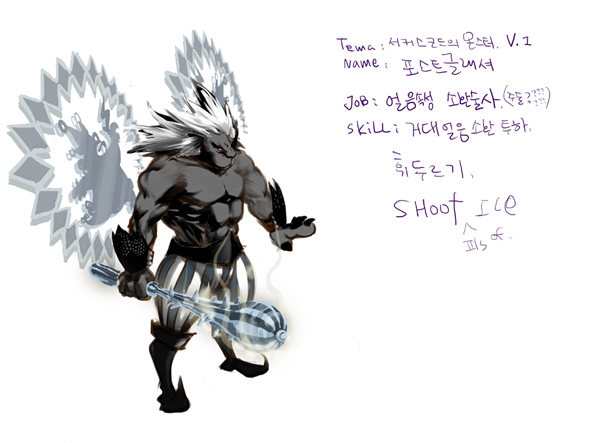 Tema : 서커스코드의 몬스터. V.1
Name : 포스트글래셔
JOB : 얼음속성 소환술사.
Skill : 거대얼음 소환 투하.
휘두르기.
SHOOT ICE